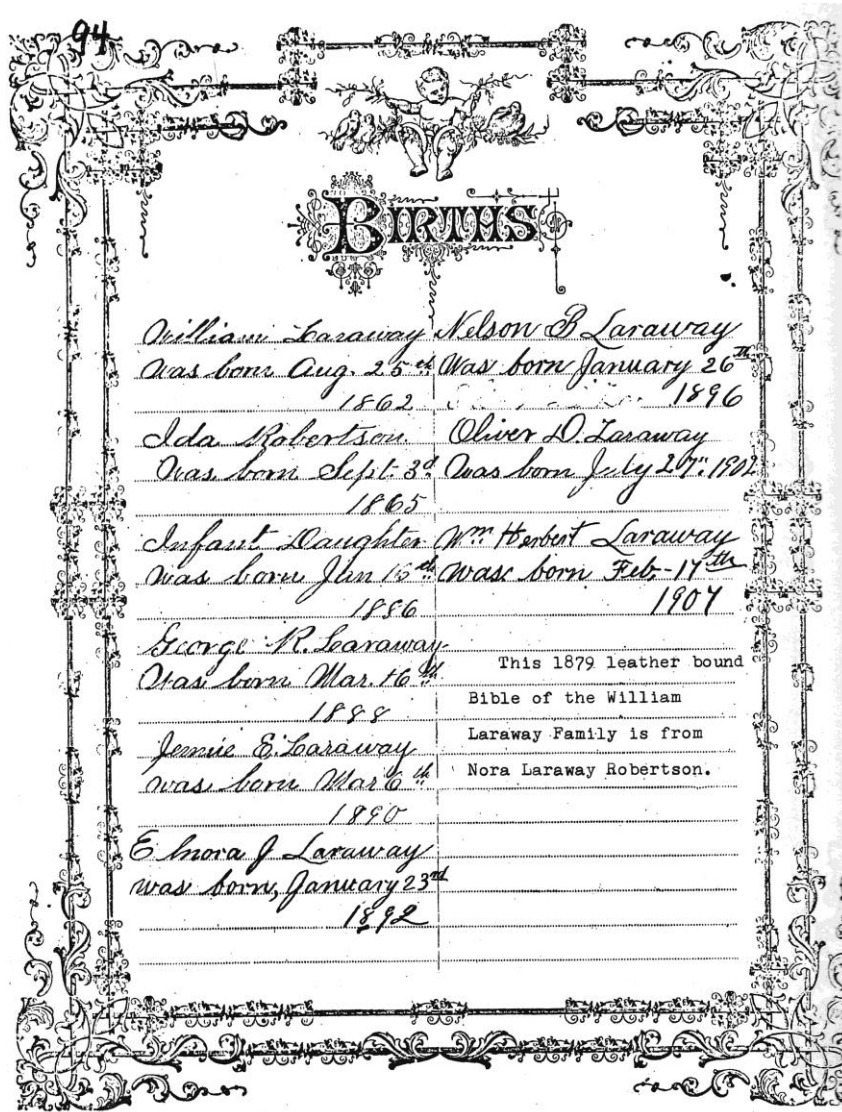 94
BIRTHS
William Laraway
Was born Aug. 25th
1862
Ida Robertson
Was born Sept. 3d
1865
Infant Daughter
was born Jan
1886
George R. Laraway
Was born Mar. 16th
1888
Jennie E. Laraway
was born Mar 6th
1890
Elnora J Laraway
was born, January 23rd
1892
Nelson B Laraway
Was born January 26th
1896
Oliver D. Laraway
Was born July 27th 1902
Wm Herbert Laraway
was born Feb-17th
1907
This 1879 leather bound
Bible of the William
Laraway Family is from
Nora Laraway Robertson.